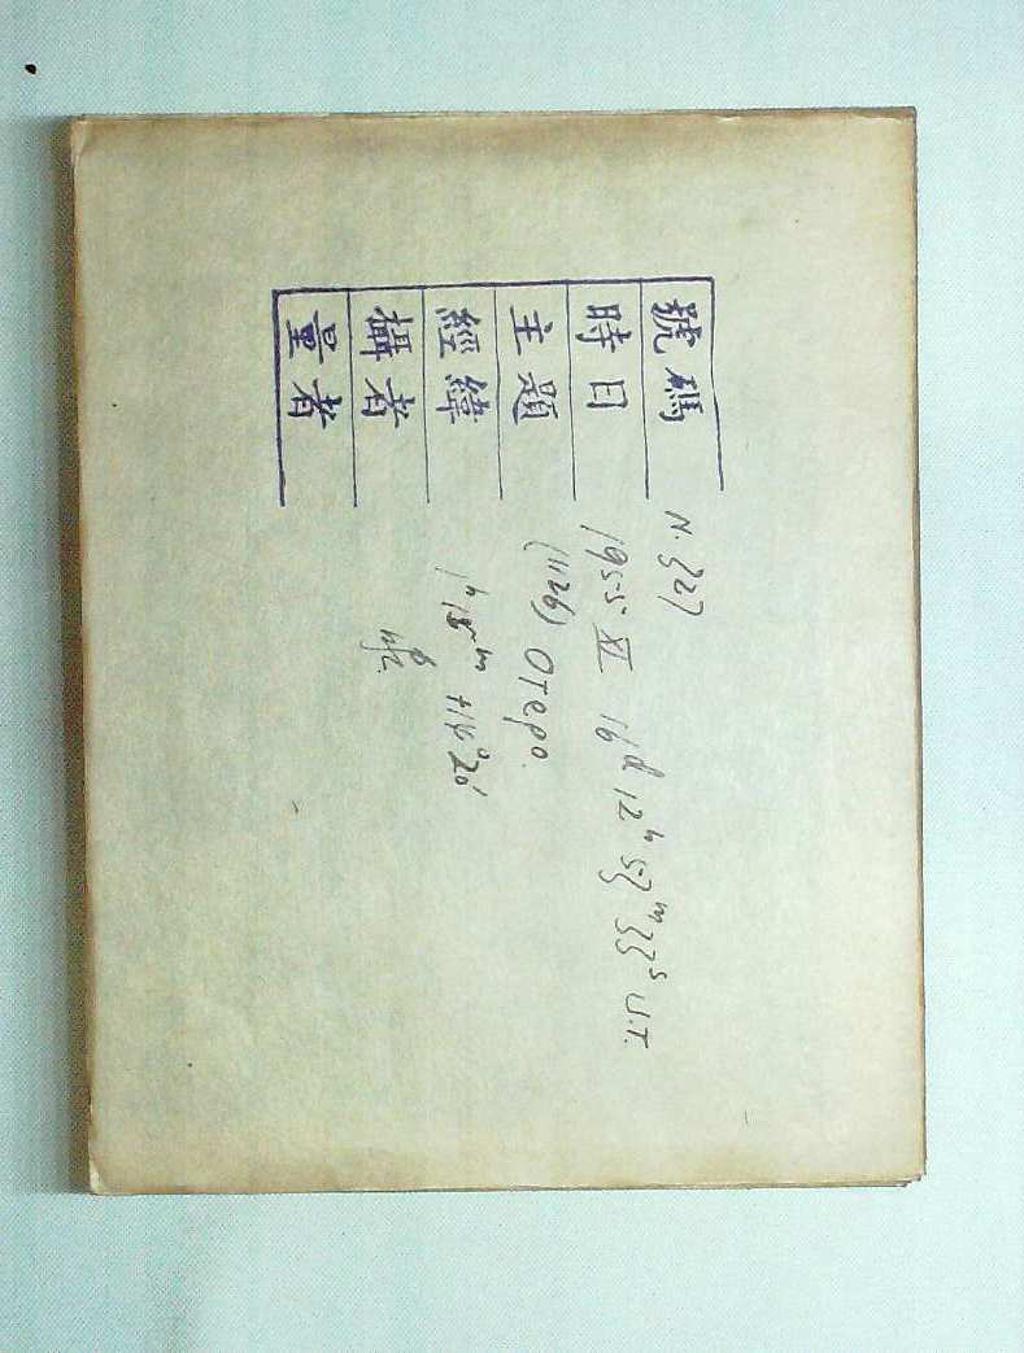 號碼 N. 327
時日 1955 XI 16ᵈ 12ʰ 53ᵐ 33ˢ U.T.
主題 (1126) Отеро.
經緯 1ʰ 18ᵐ +14°20'
攝者
量者